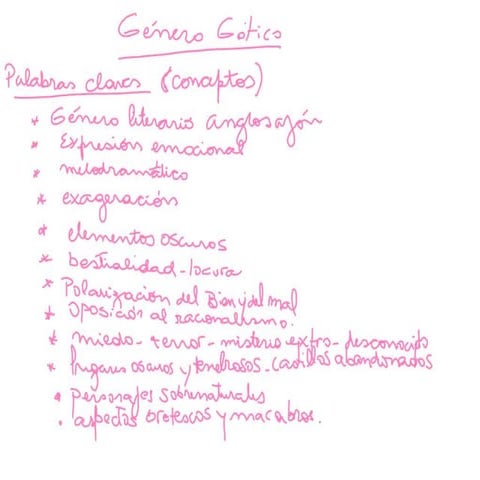 Género Gótico
Palabras claves (conceptos)
* Género literario anglosajón
* Expresión emocional
* melodramático
* exageración
* elementos oscuros
* bestialidad - locura
* Polarización del Bien y del mal
* oposición al racionalismo.
* miedo - terror - misterio extro - desconocido
* lugares oscuros y tenebrosos - castillos abandonados
* personajes sobrenaturales
. aspectos grotescos y macabros.